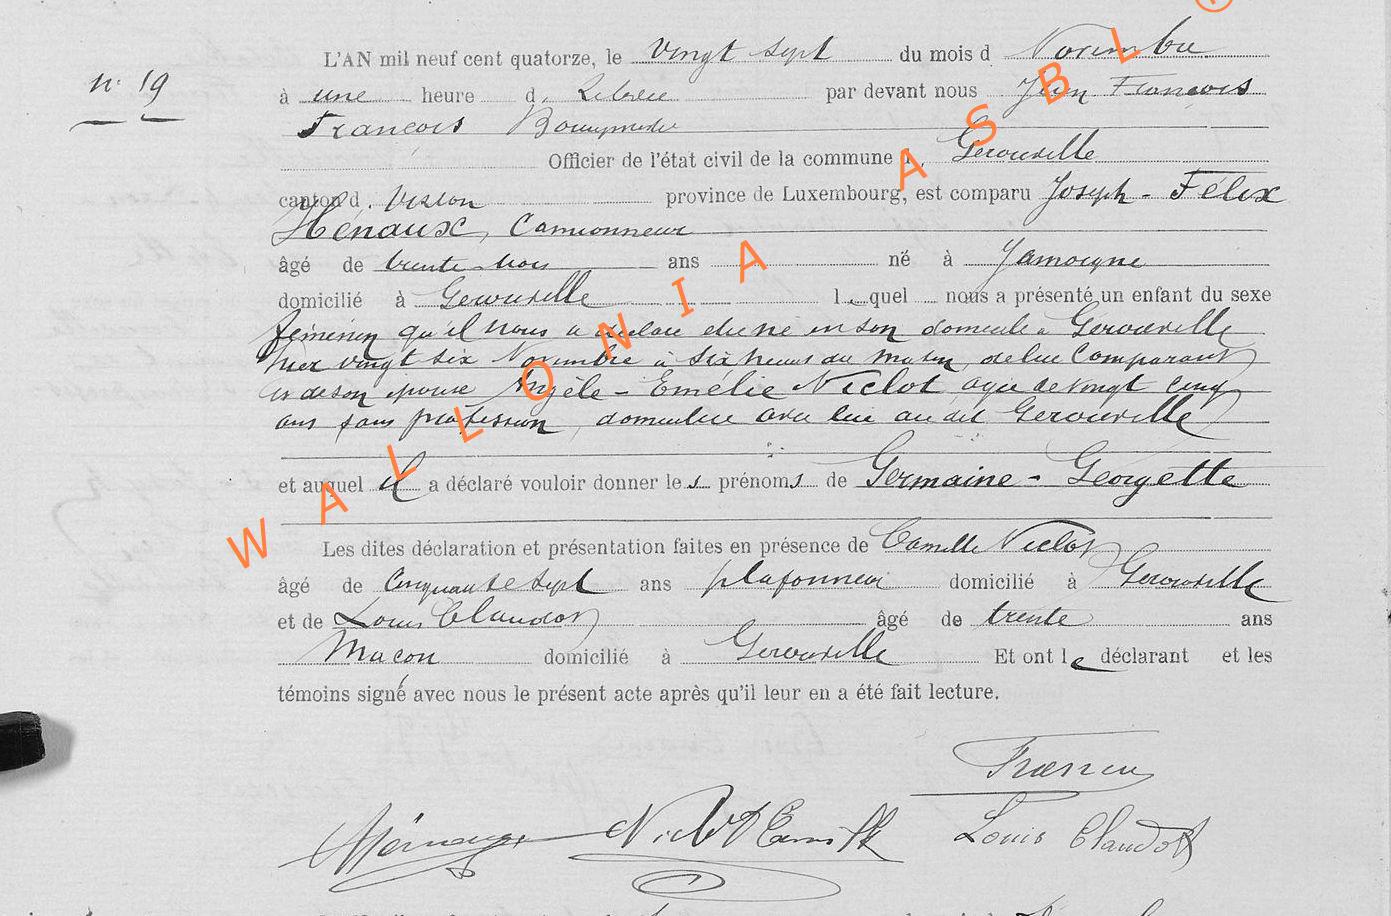 n° 19
L'AN mil neuf cent quatorze, le vingt sept du mois d Novembre
à une heure d par devant nous Jean François
François
Officier de l'état civil de la commune d Gerouville
canton d. Virton province de Luxembourg, est comparu Joseph - Félix
Hénaux, Camionneur
âgé de trente trois ans né à Jamoigne
domicilié à Gerouville lequel nous a présenté un enfant du sexe
féminin qu'il nous a déclaré être né en son domicile à Gerouville
hier vingt six Novembre à six heures du matin, de lui Comparant
et de son épouse Angèle - Emélie Niclot, âgée de vingt cinq
ans sans profession, domiciliée avec lui au dit Gerouville
et auquel il a déclaré vouloir donner les prénoms de Germaine - Georgette
Les dites déclaration et présentation faites en présence de Camille Niclot
âgé de Cinquante sept ans plafonneur domicilié à Gerouville
et de Louis Claudot âgé de trente ans
Maçon domicilié à Gerouville Et ont le déclarant et les
témoins signé avec nous le présent acte après qu'il leur en a été fait lecture.
Hénaux Niclot Camille Louis Claudot
WALLONIA ASBL